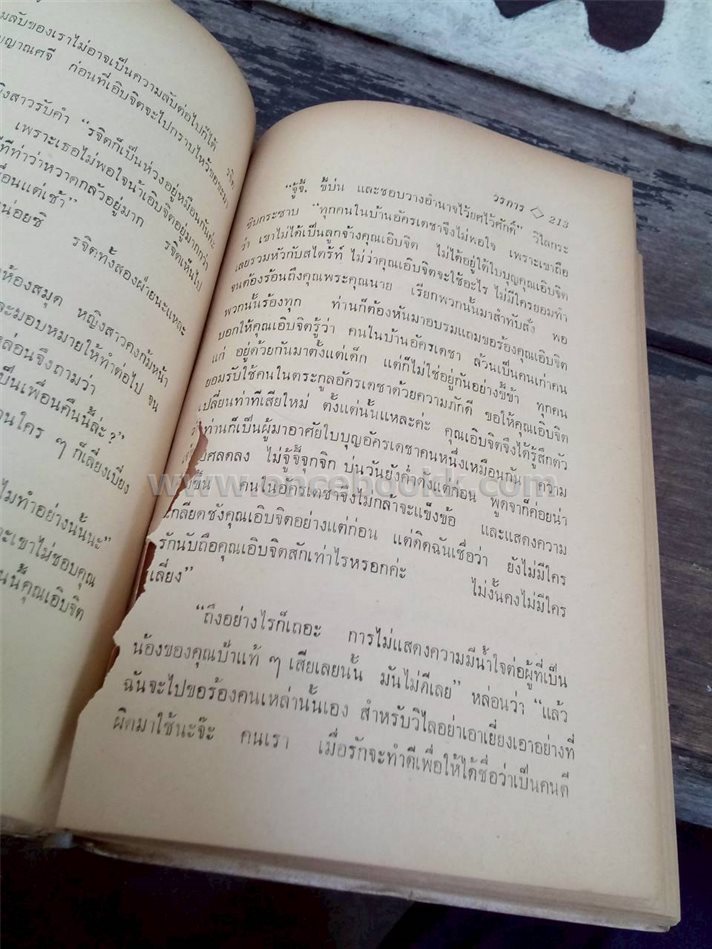 มลับของเราไม่อาจเป็นความลับต่อไปก็ได้
ก่อนที่เอิบจิตจะไปกราบไหว้ขอขะมา
งสาวรับคำ “รจิตก็เป็นห่วงอยู่เหมือนกันค่ะ
เพราะเธอไม่พอใจน้าเอิบจิตอยู่มากกว่า
ทีท่าว่าหวาดกลัวอยู่มาก รจิตเห็นไป
อนแต่เช้า”
น่อยซิ รจิตทั้งสองฝ่ายนะแหละ
ห้องสมุด หญิงสาวคงก้มหน้า
ะมอบหมายให้ทำต่อไป จน
ล่อนจึงถามว่า
ป็นเพื่อนคืนนี้ล่ะ?”
านใคร ๆ ก็เลี่ยงเบี่ยง
ไมทำอย่างนั้นนะ”
ะเขาไม่ชอบคุณ
นนี้คุณเอิบจิต
วรภาร ◇ 213
“จู้จี้ ขี้บ่น และชอบวางอำนาจไว้ยศไว้ศักดิ์” วิไลกระ
ซิบกระซาบ “ทุกคนในบ้านอัครเดชาจึงไม่พอใจ เพราะเขาถือ
ว่า เขาไม่ได้เป็นลูกจ้างคุณเอิบจิต ไม่ได้อยู่ใต้ใบบุญคุณเอิบจิต
เลยรวมหัวกันสไตร๊ท์ ไม่ว่าคุณเอิบจิตจะใช้อะไร ไม่มีใครยอมทำ
จนต้องร้อนถึงคุณพระคุณนาย เรียกพวกนั้นมาสำทับสั่ง พอ
พวกนั้นร้องทุก ท่านก็ต้องหันมาอบรมแถมขอร้องคุณเอิบจิต
บอกให้คุณเอิบจิตรู้ว่า คนในบ้านอัครเดชา ล้วนเป็นคนเก่าคน
แก่ อยู่ด้วยกันมาตั้งแต่เด็ก แต่ก็ไม่ใช่อยู่กันอย่างขี้ข้า ทุกคน
ยอมรับใช้คนในตระกูลอัครเดชาด้วยความภักดี ขอให้คุณเอิบจิต
เปลี่ยนท่าทีเสียใหม่ ตั้งแต่นั้นแหละค่ะ คุณเอิบจิตจึงได้รู้สึกตัว
ว่าท่านก็เป็นผู้มาอาศัยใบบุญอัครเดชาคนหนึ่งเหมือนกัน ความ
ยศลดลง ไม่จู้จี้จุกจิก บ่นวันยังค่ำดังแต่ก่อน พูดจาก็ค่อยน่า
ขึ้น คนในอัครเดชาจึงไม่กล้าจะแข็งข้อ และแสดงความ
กลียดชังคุณเอิบจิตอย่างแต่ก่อน แต่ดิฉันเชื่อว่า ยังไม่มีใคร
รักนับถือคุณเอิบจิตสักเท่าไรหรอกค่ะ ไม่งั้นคงไม่มีใคร
เลี่ยง”
“ถึงอย่างไรก็เถอะ การไม่แสดงความมีน้ำใจต่อผู้ที่เป็น
น้องของคุณป้าแท้ ๆ เสียเลยนั้น มันไม่ดีเลย” หล่อนว่า “แล้ว
ฉันจะไปขอร้องคนเหล่านั้นเอง สำหรับวิไลอย่าเอาเยี่ยงเอาอย่างที่
ผิดมาใช้นะจ๊ะ คนเรา เมื่อรักจะทำดีเพื่อให้ได้ชื่อว่าเป็นคนดี
www.oncebookk.com